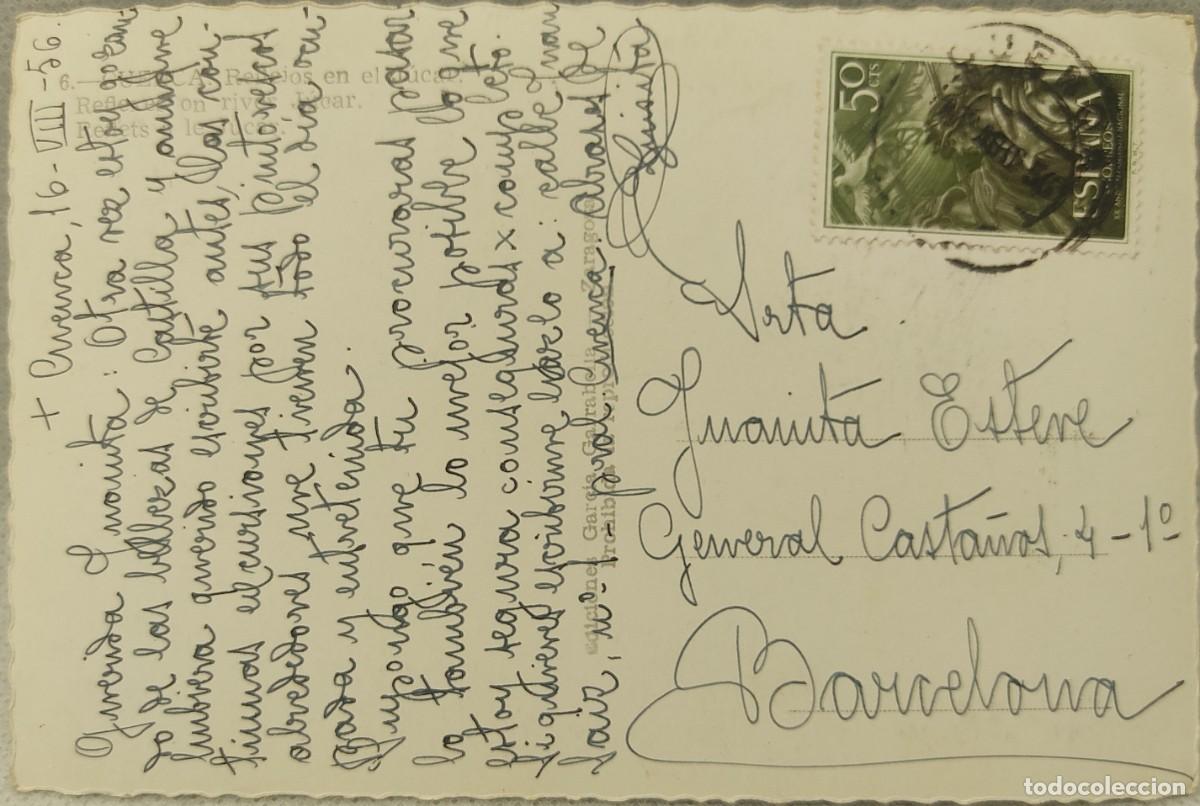 6.— CUENCA. Reflejos en el Júcar.
Reflexes on river Júcar.
Reflets le Jucar.
+ Cuenca, 16-VIII-56.
Querida Juanita: Otra vez estoy
do de las bellezas de Castilla y aunque
hubiera querido escribirte antes, las con-
tinuas excursiones por sus pintorescos
alrededores me tienen todo el día ocu-
pada y entretenida.
Supongo que tu procurarás pasar
lo también lo mejor posible lo que
estoy segura conseguirás x completo.
Si quieres escribirme hazlo a: calle
saiz, nº 1- pral Cuenca. Abrazos de
Luisita
Ediciones García Garrabella Zaragoza
Prohibida la reproducción
50 CTS
ESPAÑA
CORREOS
Srta
Juanita Esteve
General Castaños, 4-1º
Barcelona
todocoleccion